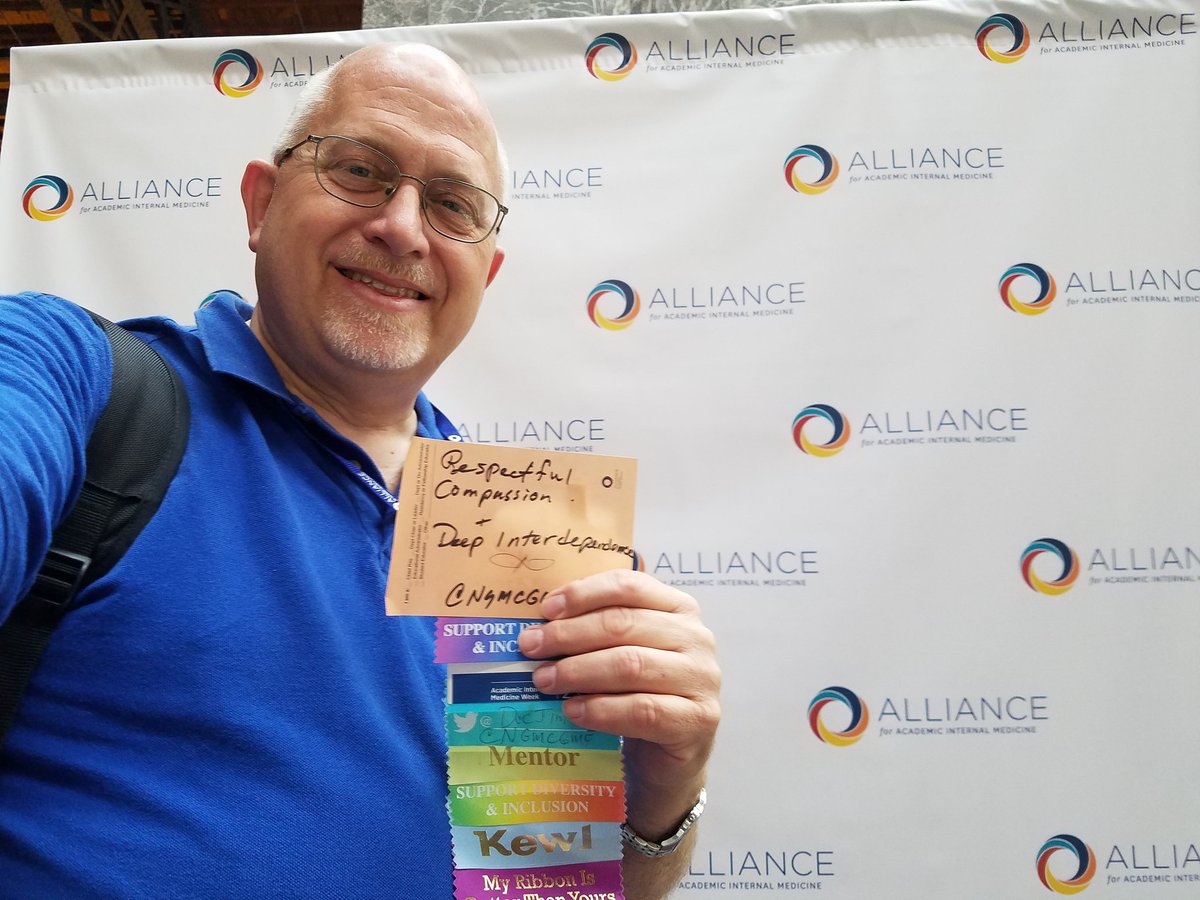 ALLIANCE
for ACADEMIC INTERNAL MEDICINE
ALLIANCE
for ACADEMIC INTERNAL MEDICINE
ALLIANCE
for ACADEMIC INTERNAL MEDICINE
ALLIANCE
for ACADEMIC INTERNAL MEDICINE
ALLIANCE
for ACADEMIC INTERNAL MEDICINE
INTERNAL MEDICINE
ALLIANCE
for ACADEMIC INTERNAL MEDICINE
ALLIANCE
for ACADEMIC INTERNAL
ALLIANCE
INTERNAL MEDICINE
ALLIANCE
for ACADEMIC INTERNAL MEDICINE
ALLIANCE
Respectful
Compassion
+
Deep Interdependence
SUPPORT
& INC
Academic
Medicine Week
@
@NGMCGME
Mentor
SUPPORT DIVERSITY
& INCLUSION
Kewl
My Ribbon Is
Better Than Yours
ALLIANCE
for ACADEMIC INTERNAL MEDICINE
for ACADEMIC INTERNAL
ALLIANCE
for ACADEMIC INTERNAL MEDICINE
ALLIANCE
for ACADEMIC INTERNAL MEDICINE
for ACADEMIC INTERNAL